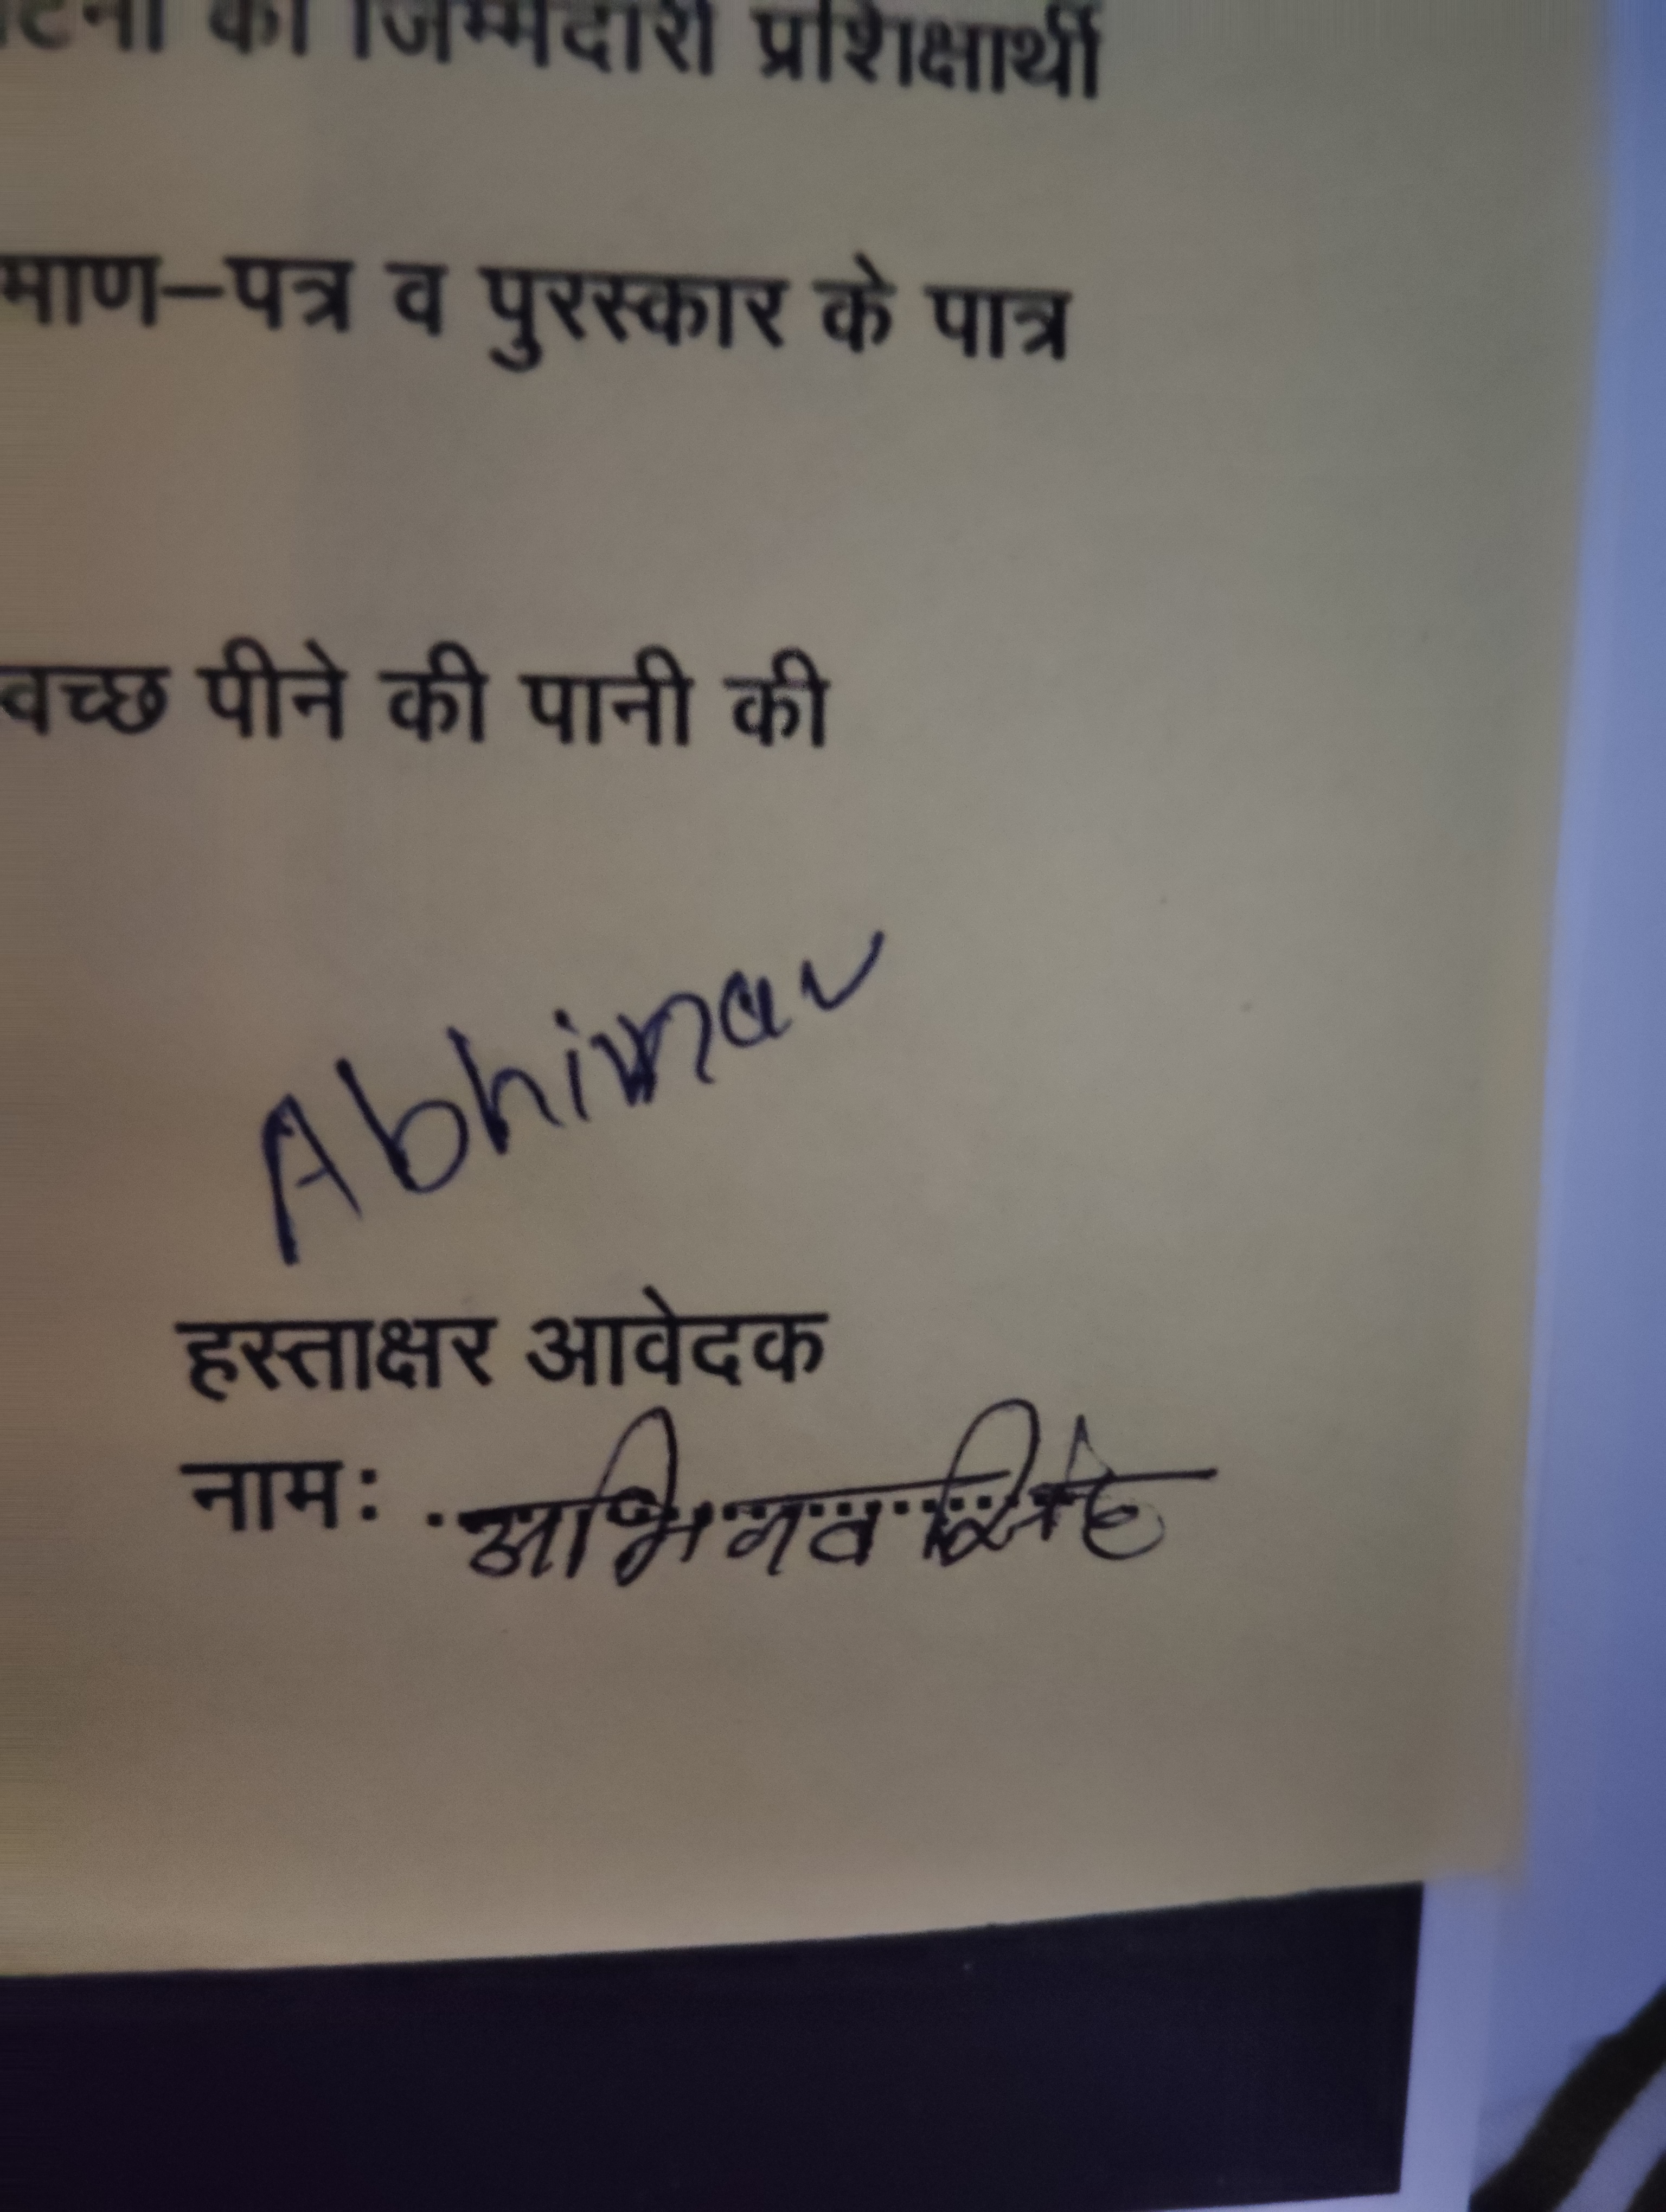 की जिम्मेदारी प्रशिक्षार्थी
माण–पत्र व पुरस्कार के पात्र
वच्छ पीने की पानी की
Abhinav
हस्ताक्षर आवेदक
नामः अभिनव सिंह